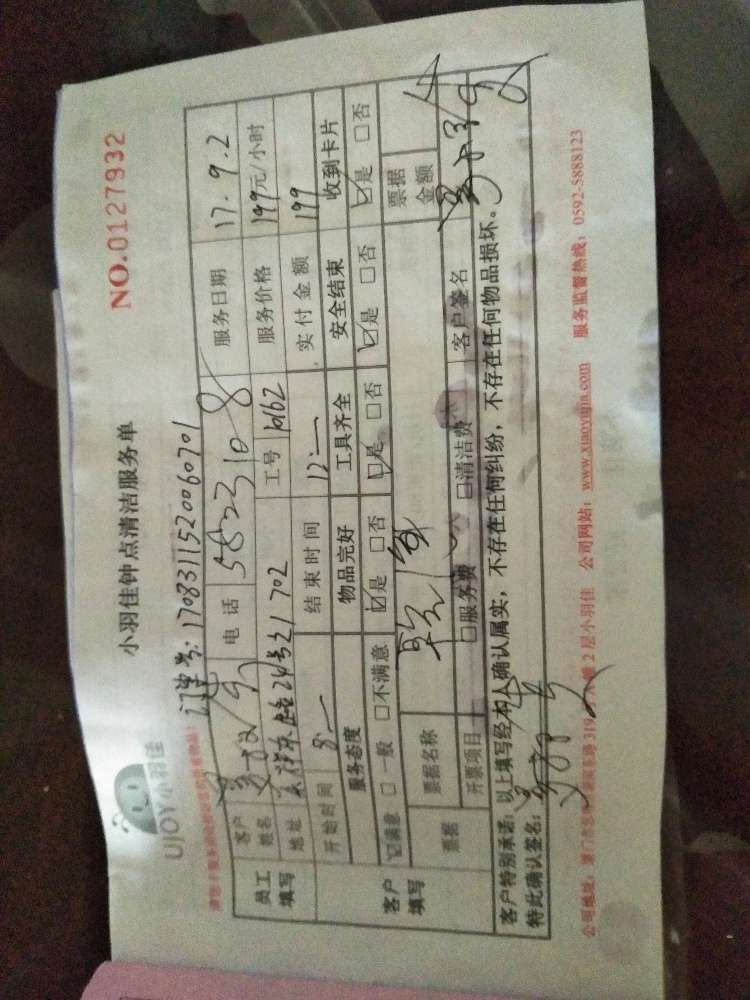 UJOY小羽佳
小羽佳钟点清洁服务单
NO.0127932
订单号:1708311520060701
员工填写
客户姓名
电话 5823108
服务日期 17.9.2
地址 24号21 702
工号 1062
服务价格 199元/小时
开始时间 8:—
结束时间 12:—
实付金额 199
客户填写
服务态度 物品完好 工具齐全 安全结束 收到卡片
☑满意 □一般 □不满意 ☑是 □否 ☑是 □否 ☑是 □否 ☑是 □否
票据 票据名称 票据金额
开票项目 □服务费 □清洁费 客户签名
客户特别承诺:以上填写经本人确认属实,不存在任何纠纷,不存在任何物品损坏。
特此确认签名:
公司地址: 2层小羽佳 公司网站:www.xiaoyujia.com 服务监督热线:0592-5888123